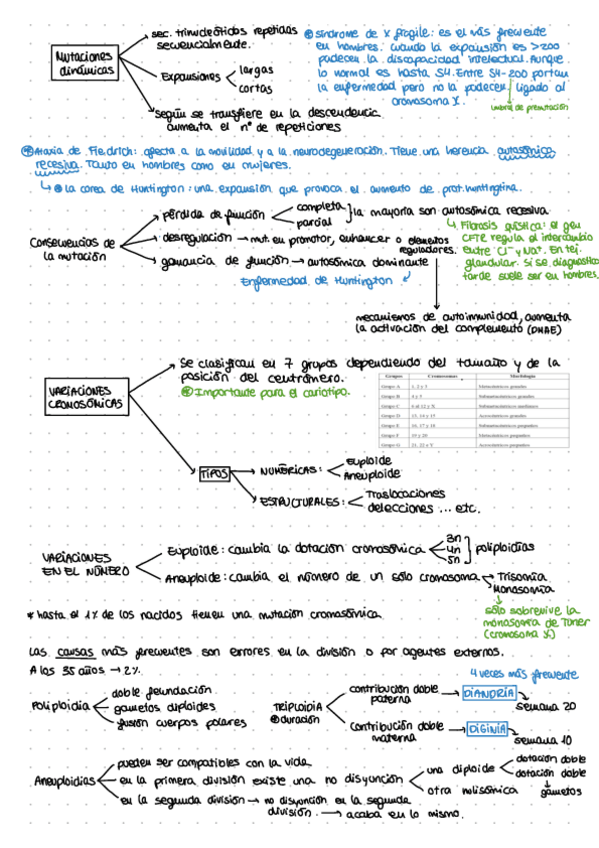 Mutaciones
dinámicas
sec. trinucleótidos repetidas
secuencialmente.
Expansiones
largas
cortas
según se transfiere en la descendencia
aumenta el nº de repeticiones
síndrome de X frágil: es el más frecuente
en hombres. Cuando la expansión es >200
padecen la discapacidad intelectual. Aunque
lo normal es hasta 54. Entre 54-200 portan
la enfermedad pero no la padecen. ligado al
cromosoma X.
umbral de premutación
Ataxia de Fiedrich: afecta a la movilidad y a la neurodegeneración. Tiene una herencia autosómica
recesiva. Tanto en hombres como en mujeres.
la corea de Huntington: una expansión que provoca el aumento de prot. huntingtina.
Consecuencias de
la mutación
pérdida de función
completa
parcial
la mayoría son autosómica recesiva
desregulación → mut. en promotor, enhancer o elementos
reguladores.
ganancia de función → autosómica dominante
Enfermedad de Huntington
Fibrosis quística: el gen
CFTR regula el intercambio
entre Cl⁻ y Na⁺. En tej.
glandular. Si se diagnostica
tarde suele ser en hombres.
mecanismos de autoinmunidad, aumenta
la activación del complemento (DMAE)
VARIACIONES
CROMOSÓMICAS
Se clasifican en 7 grupos dependiendo del tamaño y de la
posición del centrómero.
Importante para el cariotipo.
Grupos Cromosomas Morfología
Grupo A 1, 2 y 3 Metacéntricos grandes
Grupo B 4 y 5 Submetacéntricos grandes
Grupo C 6 al 12 y X Submetacéntricos medianos
Grupo D 13, 14 y 15 Acrocéntricos grandes
Grupo E 16, 17 y 18 Submetacéntricos pequeños
Grupo F 19 y 20 Metacéntricos pequeños
Grupo G 21, 22 e Y Acrocéntricos pequeños
TIPOS
NUMÉRICAS:
Euploide
Aneuploide
ESTRUCTURALES:
Traslocaciones
delecciones ... etc.
VARIACIONES
EN EL NÚMERO
Euploide: cambia la dotación cromosómica
3n
4n
5n
poliploidías
Aneuploide: cambia el número de un sólo cromosoma
Trisomía
Monosomía
sólo sobrevive la
monosomía de Turner
(cromosoma X)
* hasta el 1% de los nacidos tienen una mutación cromosómica
Las causas más frecuentes son errores en la división o por agentes externos.
A los 35 años → 2%
Poliploidía
doble fecundación
gametos diploides
fusión cuerpos polares
TRIPLOIDIA
duración
contribución doble
paterna
DIANDRIA
4 veces más frecuente
semana 20
contribución doble
materna
DIGINIA
semana 10
Aneuploidías
pueden ser compatibles con la vida
en la primera división existe una no disyunción
una diploide
dotación doble
dotación doble
gametos
otra nulisómica
en la segunda división → no disyunción en la segunda
división. → acaba en lo mismo.